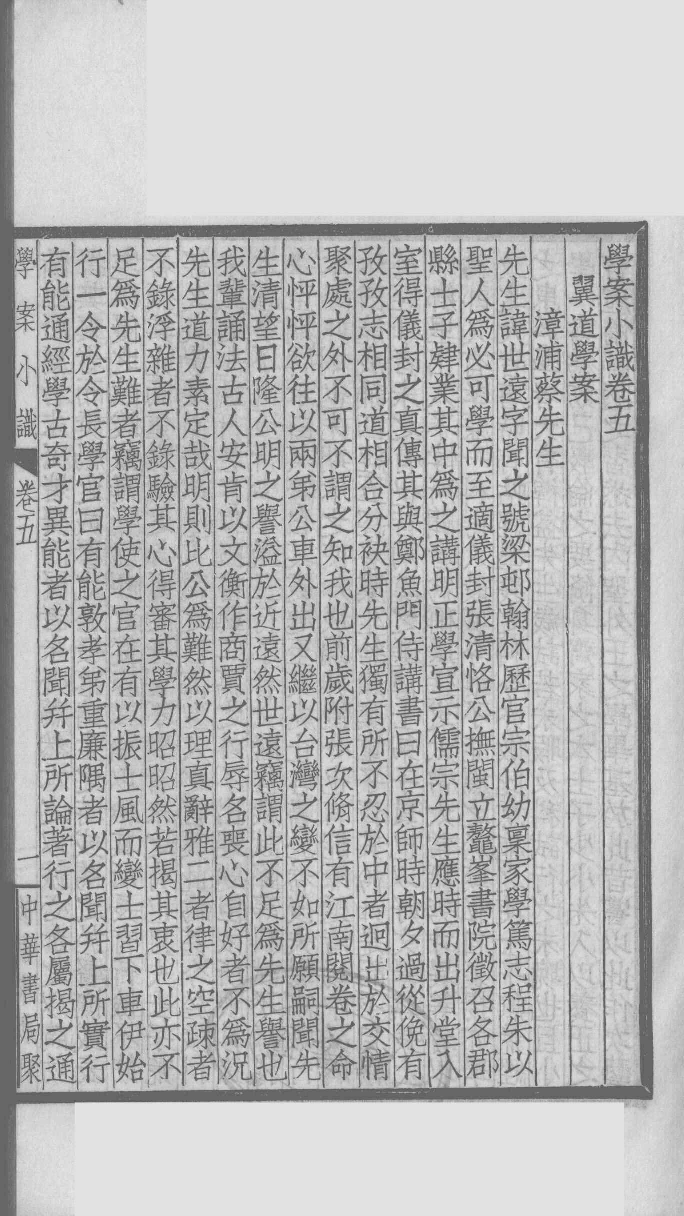 學案小識卷五
翼道學案
漳浦蔡先生
先生諱世遠字聞之號梁邨翰林歷官宗伯幼稟家學篤志程朱以
聖人爲必可學而至適儀封張清恪公撫閩立鼇峯書院徵召各郡
縣士子肄業其中爲之講明正學宣示儒宗先生應時而出升堂入
室得儀封之真傳其與鄭魚門侍講書曰在京師時朝夕過從俛有
孜孜志相同道相合分袂時先生獨有所不忍於中者迥出於交情
聚處之外不可不謂之知我也前歲附張次脩信有江南閱卷之命
心怦怦欲往以兩弟公車外出又繼以台灣之變不如所願嗣聞先
生清望日隆公明之譽溢於近遠然世遠竊謂此不足爲先生譽也
我輩誦法古人安肯以文衡作商賈之行辱名喪心自好者不爲況
先生道力素定哉明則比公爲難然以理真辭雅二者律之空疎者
不錄浮雜者不錄驗其心得審其學力昭昭然若揭其衷也此亦不
足爲先生難者竊謂學使之官在有以振士風而變士習下車伊始
行一令於令長學官曰有能敦孝弟重廉隅者以名聞幷上所實行
有能通經學古奇才異能者以名聞幷上所論著行之各屬揭之通
學案小識
卷五
一
中華書局聚